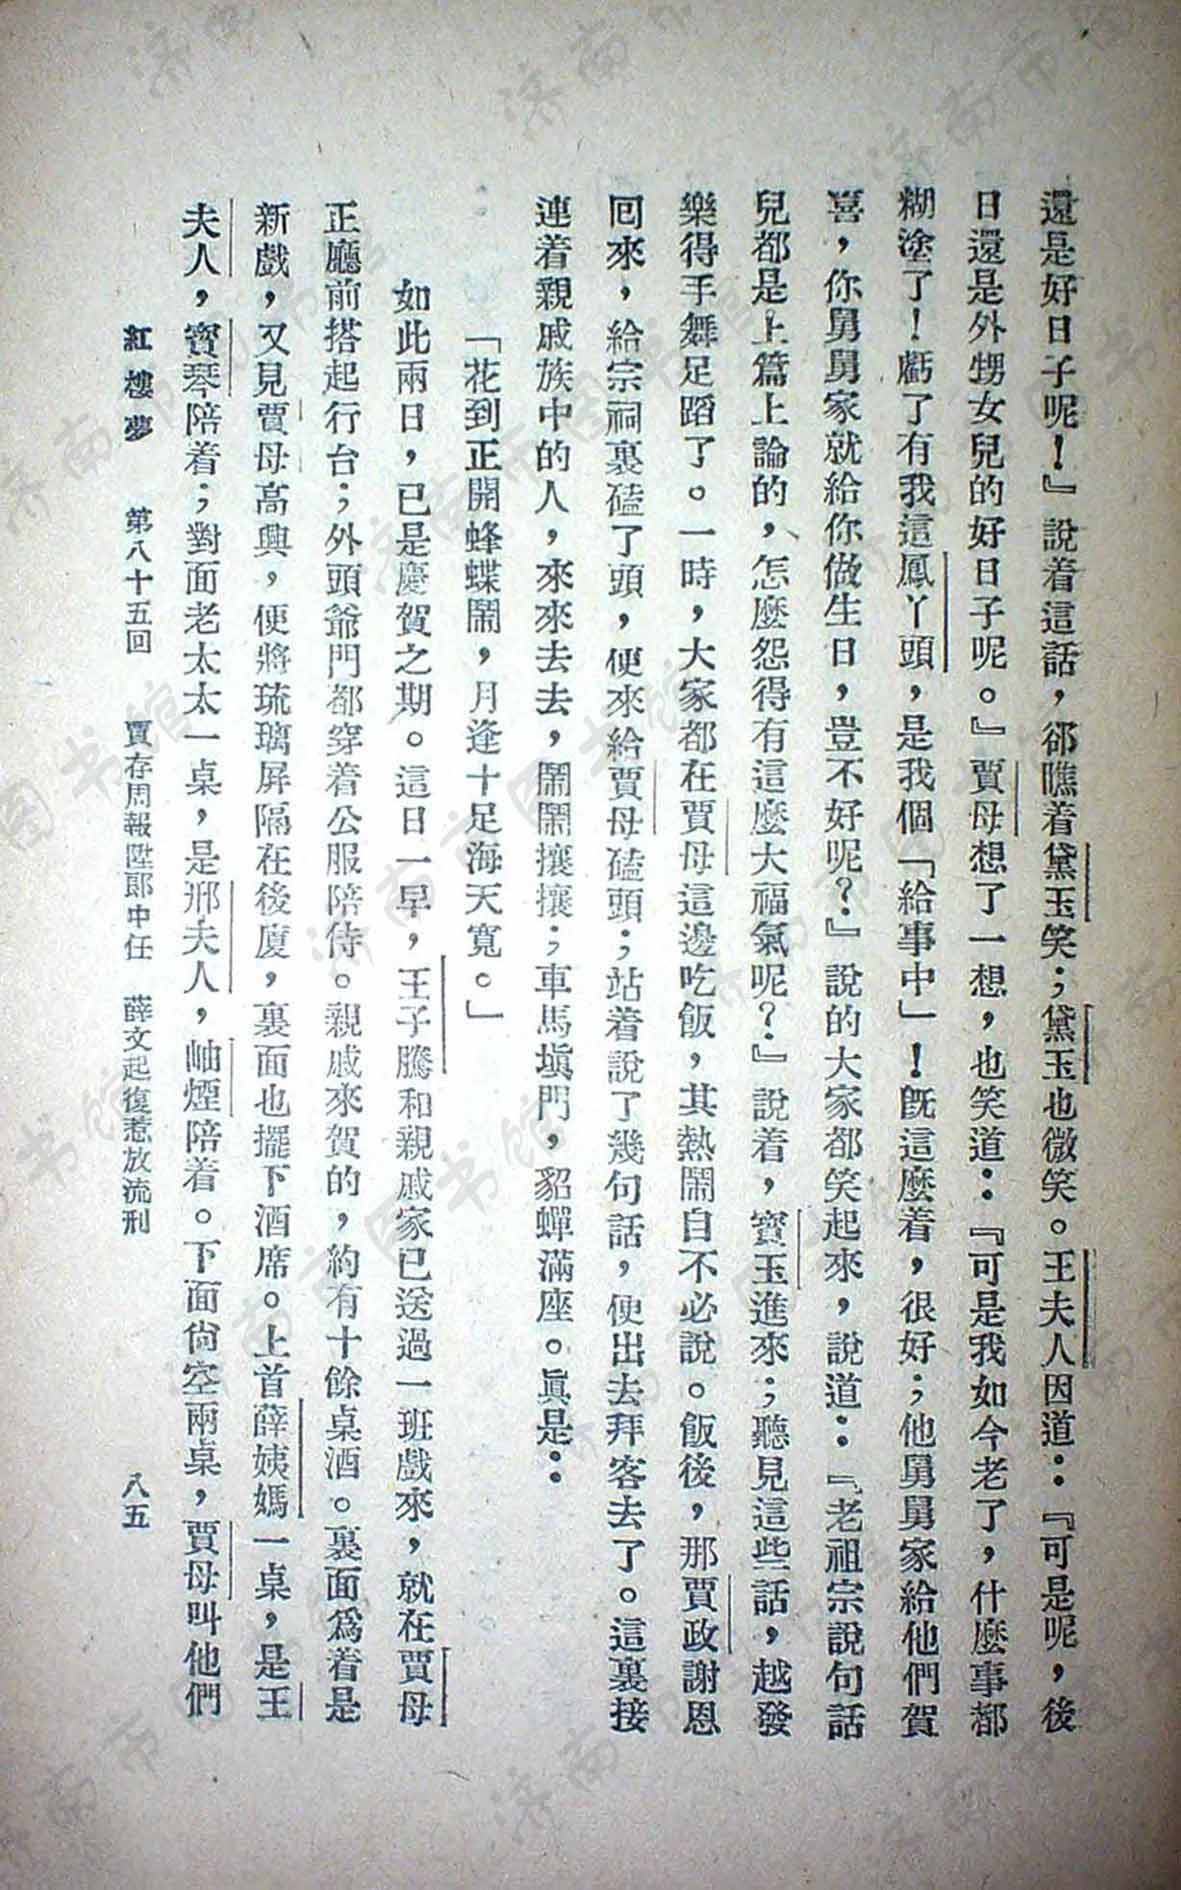 還是好日子呢！』說着這話，郤瞧着黛玉笑；黛玉也微笑。王夫人因道：『可是呢，後
日還是外甥女兒的好日子呢。』賈母想了一想，也笑道：『可是我如今老了，什麼事都
糊塗了！虧了有我這鳳丫頭，是我個「給事中」！旣這麼着，很好；他舅舅家給他們賀
喜，你舅舅家就給你做生日，豈不好呢？』說的大家都笑起來，說道：『老祖宗說句話
兒都是上篇上論的，怎麼怨得有這麼大福氣呢？』說着，寶玉進來；聽見這些話，越發
樂得手舞足蹈了。一時，大家都在賈母這邊吃飯，其熱鬧自不必說。飯後，那賈政謝恩
回來，給宗祠裏磕了頭，便來給賈母磕頭；站着說了幾句話，便出去拜客去了。這裏接
連着親戚族中的人，來來去去，鬧鬧攘攘；車馬塡門，貂蟬滿座。眞是：
「花到正開蜂蝶鬧，月逢十足海天寬。」
如此兩日，已是慶賀之期。這日一早，王子騰和親戚家已送過一班戲來，就在賈母
正廳前搭起行台；外頭爺門都穿着公服陪侍。親戚來賀的，約有十餘桌酒。裏面爲着是
新戲，又見賈母高興，便將琉璃屏隔在後廈，裏面也擺下酒席。上首薛姨媽一桌，是王
夫人，寶琴陪着；對面老太太一桌，是邢夫人，岫煙陪着。下面尙空兩桌，賈母叫他們
紅樓夢　第八十五回　賈存周報陞郎中任　薛文起復惹放流刑　八五
济南市图书馆